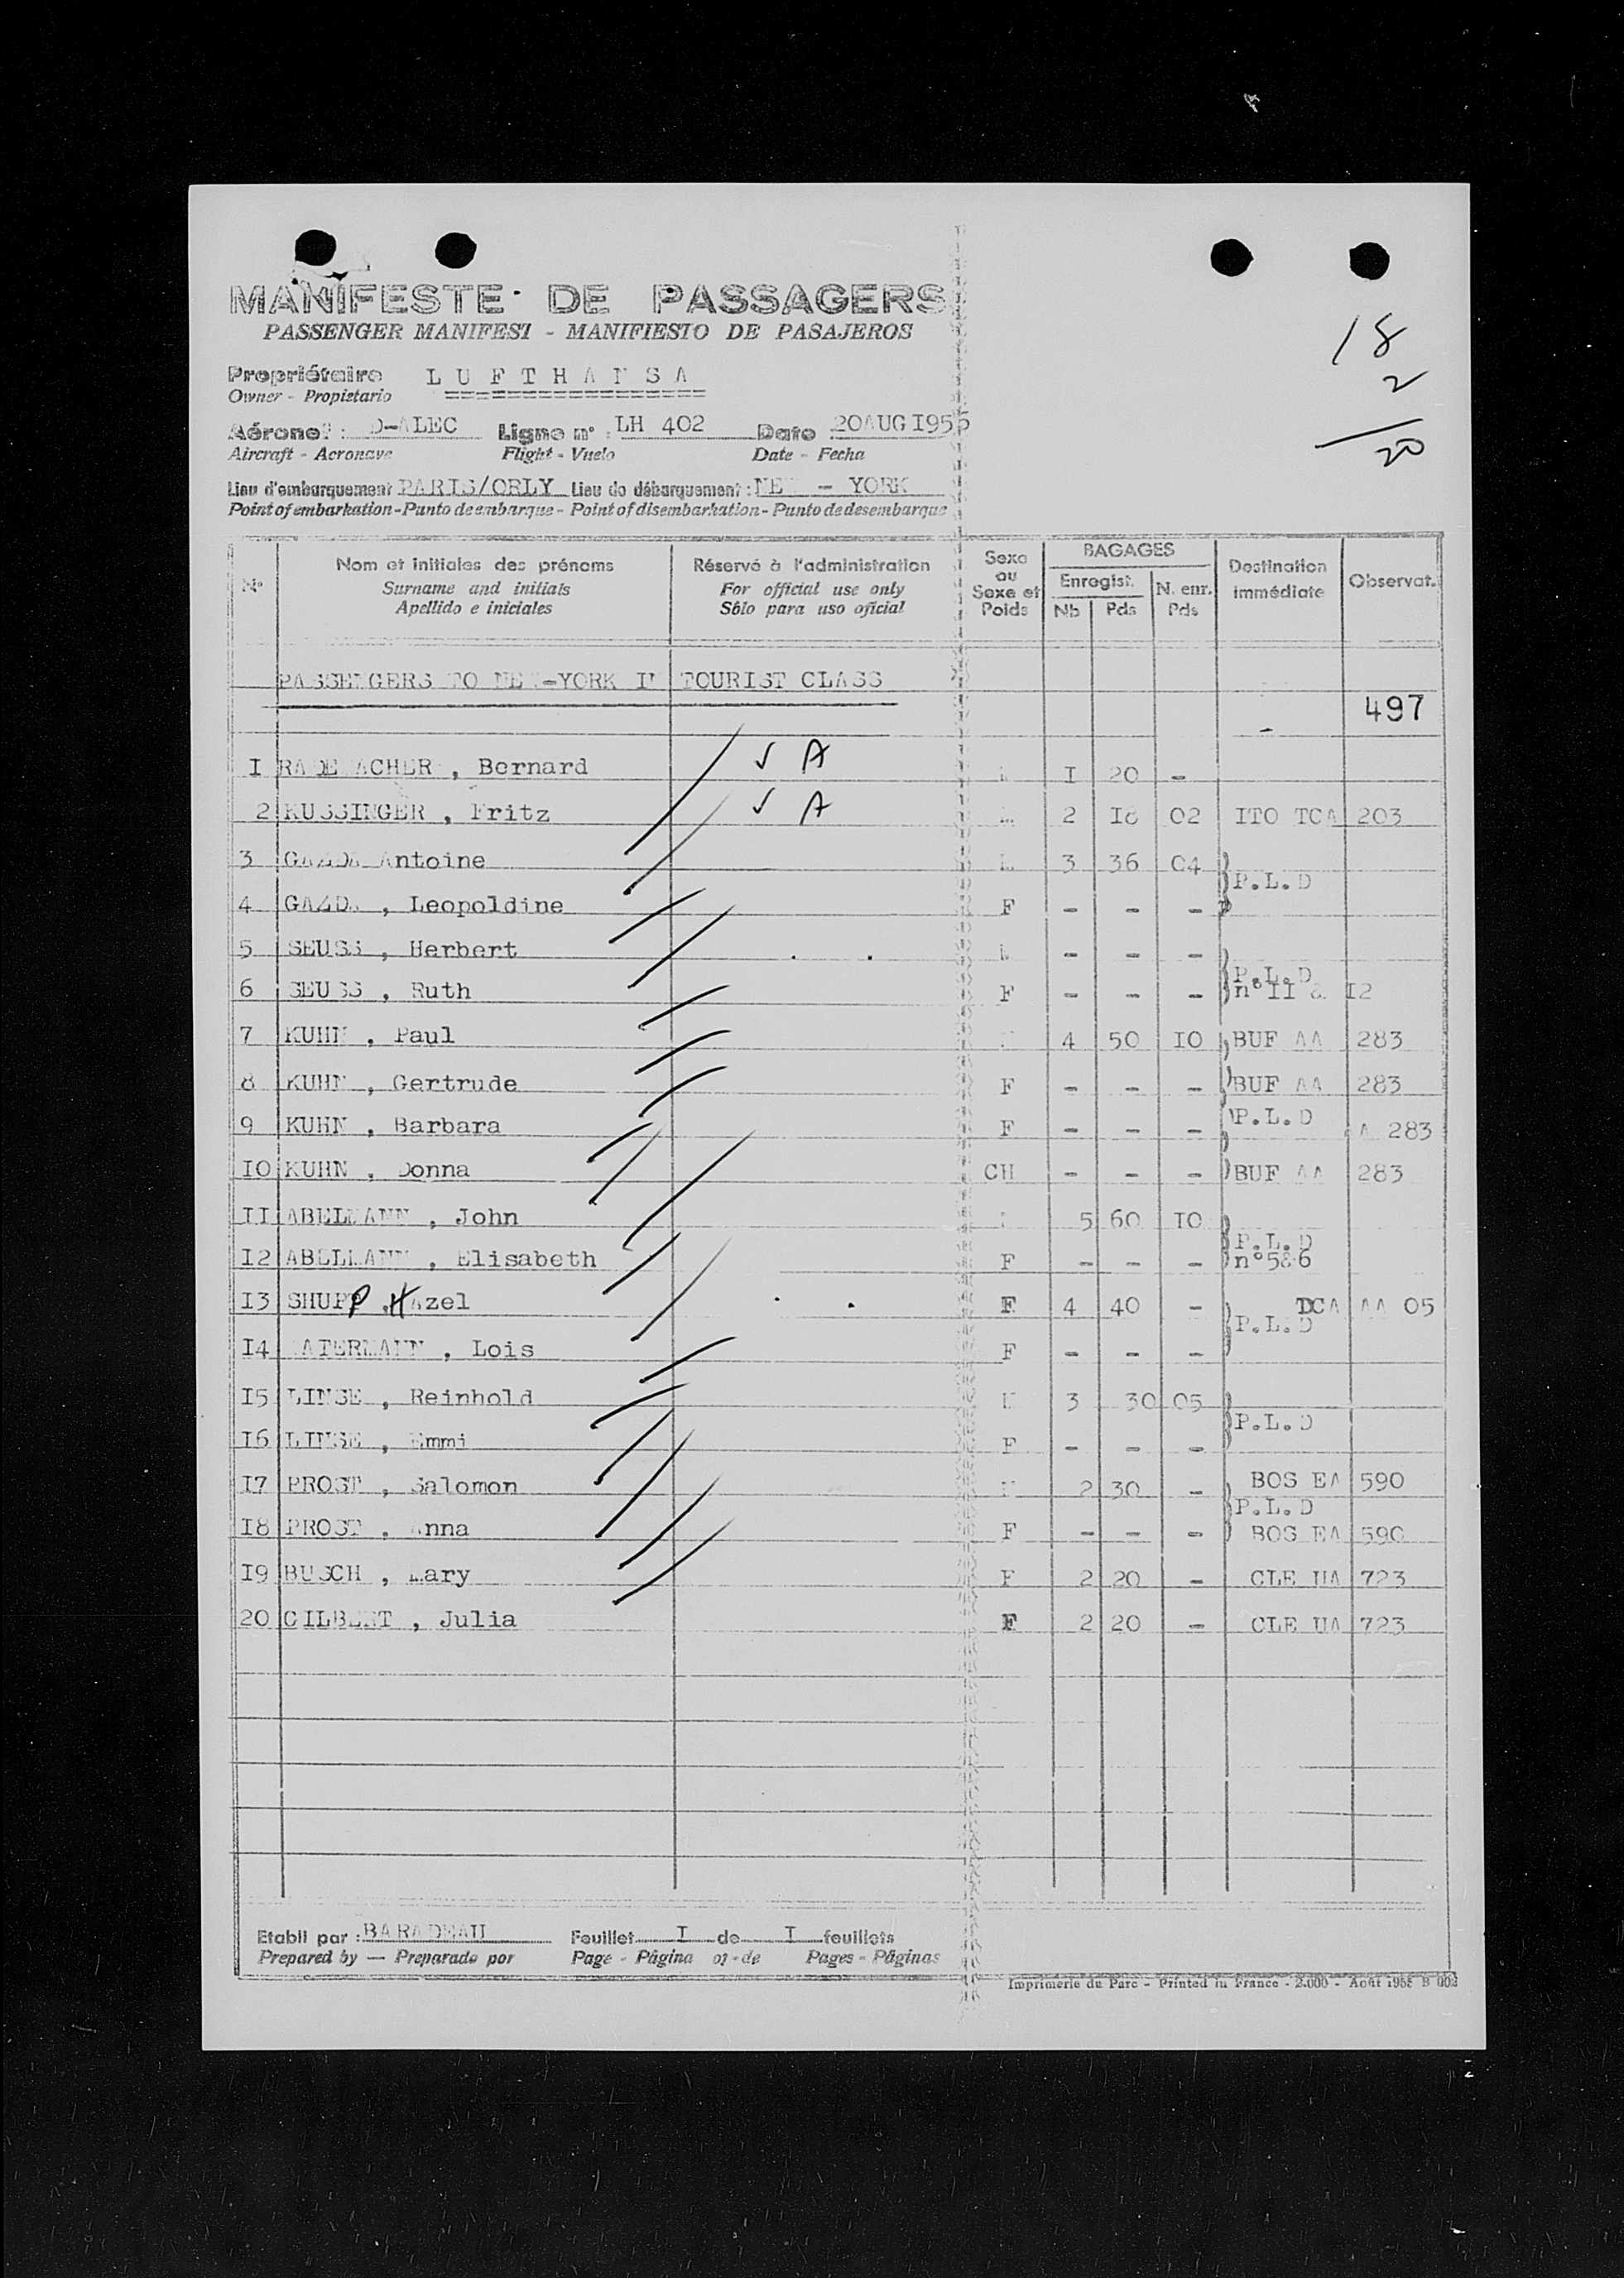 MANIFESTE DE PASSAGERS
PASSENGER MANIFEST - MANIFIESTO DE PASAJEROS
18
2
20
Propriétaire LUFTHANSA
Owner - Propietario
Aéronef : D-ALEC Ligne n° : LH 402 Date 20AUG I955
Aircraft - Aeronave Flight - Vuelo Date - Fecha
Lieu d'embarquement PARIS/ORLY Lieu de débarquement : NEW - YORK
Point of embarkation - Punto de embarque - Point of disembarkation - Punto de desembarque
N° Nom et initiales des prénoms Réservé à l'administration Sexe ou Sexe et Poids BAGAGES Destination immédiate Observat.
Surname and initials For official use only Enregist. N. enr.
Apellido e iniciales Sólo para uso oficial Nb Pds Pds
PASSENGERS TO NEW-YORK IN TOURIST CLASS
497
I RADEMACHER , Bernard √ A I 20 -
2 KUSSINGER , Fritz √ A 2 I8 02 ITO TCA 203
3 GAZDA Antoine 3 36 04 P.L.D
4 GAZDA , Leopoldine F - - -
5 SEUSS , Herbert - - -
P.L.D
6 SEUSS , Ruth F - - - n° II & I2
7 KUHN , Paul 4 50 IO BUF AA 283
8 KUHN , Gertrude F - - - BUF AA 283
9 KUHN , Barbara F - - - P.L.D A 283
IO KUHN , Donna CH - - - BUF AA 283
II ABELMANN , John 5 60 IO
P.L.D
I2 ABELMANN , Elisabeth F - - - n°5&6
I3 SHUPP , Hazel F 4 40 - DCA AA 05
P.L.D
I4 WATERMANN , Lois F - - -
I5 LINSE , Reinhold M 3 30 05
P.L.D
I6 LINSE , Emmi F - - -
I7 PROST , Salomon M 2 30 - BOS EA 590
P.L.D
I8 PROST , Anna F - - - BOS EA 590
I9 BUSCH , Mary F 2 20 - CLE UA 723
20 GILBERT , Julia F 2 20 - CLE UA 723
Etabli par : BARADEAU Feuillet I de I feuillets
Prepared by — Preparado por Page - Página of - de Pages - Páginas
Imprimerie du Parc - Printed in France - 2.000 - Août 1955 B 002